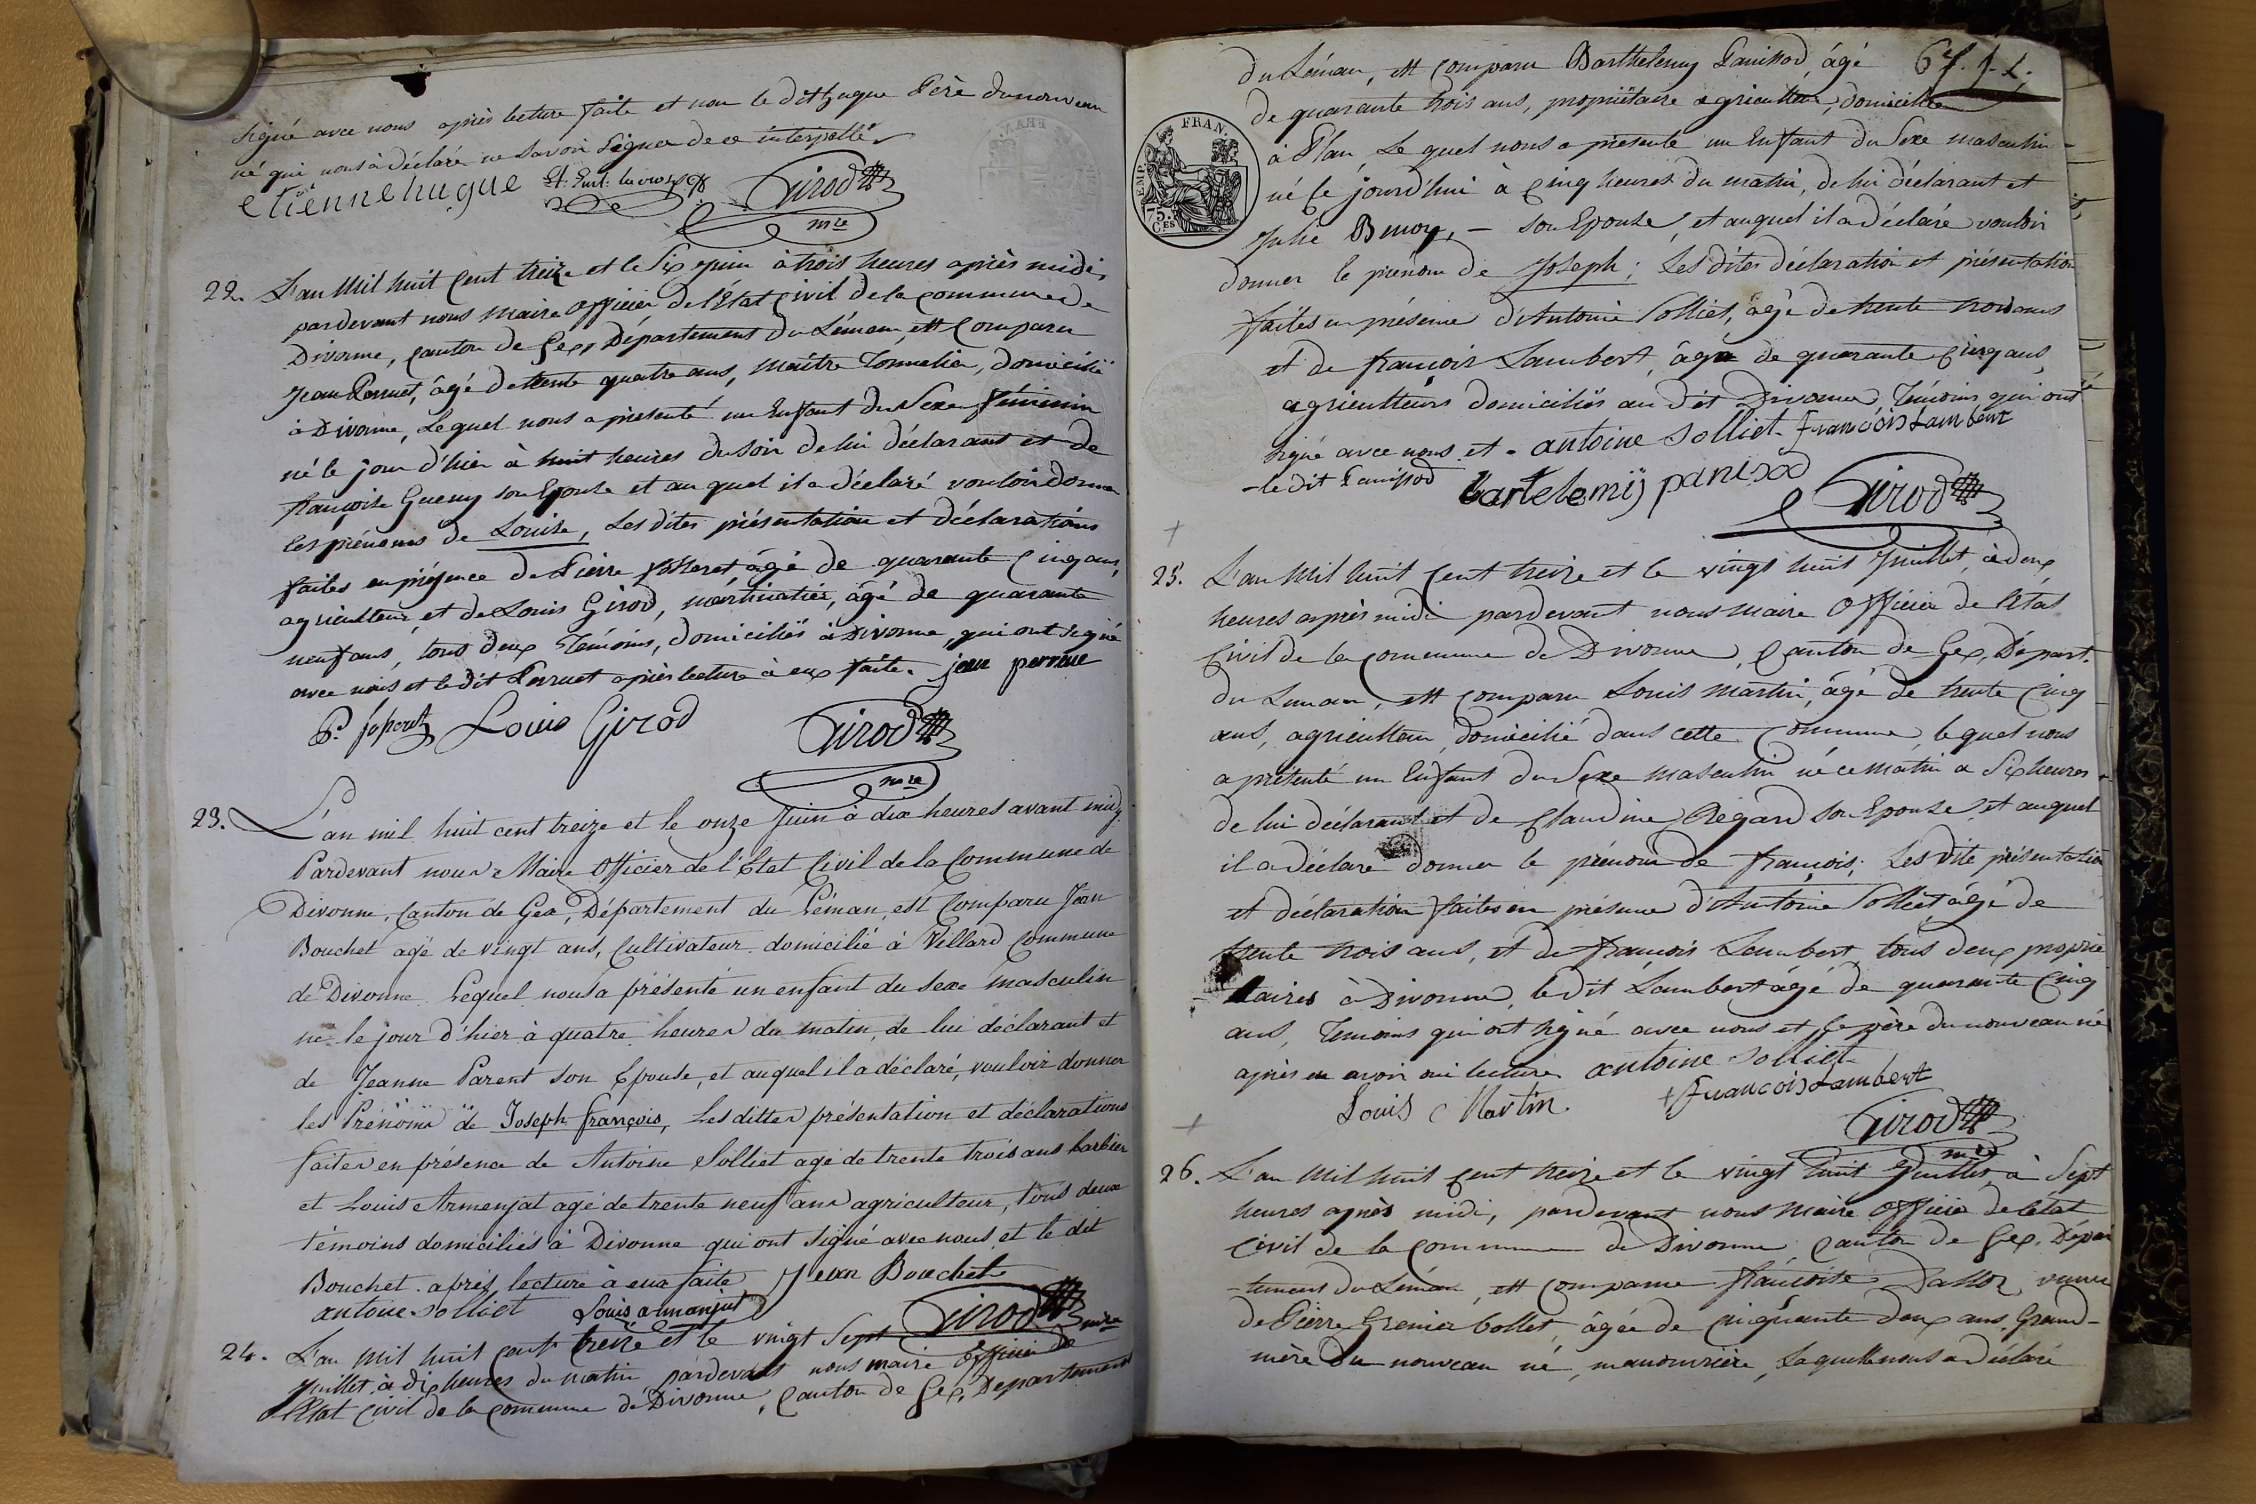 signé avec nous après lecture faite et non le dit hugue Père du nouveau
né qui nous à déclaré ne savoir signer de ce interpellé
etienne hugue Girod
mre
22. L'an Mil huit Cent treize et le Six juin à trois heures après midi,
pardevant nous Maire Officier de l'état Civil de la Commune de
Divonne, Canton de Gex, Département du Léman, est Comparu
Jean Perruet, âgé de trente quatre ans, Maître Tonnelier, domicilié
à Divonne, Lequel nous a présenté un Enfant du Sexe féminin
né le jour d'hier à huit heures du soir de lui déclarant et de
françoise Gueny son Epouse et au quel il a déclaré vouloir donner
les prénoms de Louise, Les dites présentation et déclarations
faites en présence de Pierre âgé de quarante Cinq ans,
agriculteur et de Louis Girod, âgé de quarante
neuf ans, tous deux Témoins, domiciliés à Divonne, qui ont signé
avec nous et le dit Perruet après lecture à eux faite. jean perruet
P. Louis Girod Girod
mre
23. L'an mil huit cent treize et le onze Juin à dix heures avant midy
Pardevant nous Maire Officier de l'Etat Civil de la Commune de
Divonne, Canton de Gex, Département du Léman, est Comparu Jean
Bouchet agé de vingt ans, Cultivateur domicilié à Villard Commune
de Divonne Lequel nous a présenté un enfant du sexe masculin
né le jour d'hier à quatre heures du matin, de lui déclarant et
de Jeanne Parent son Epouse, et auquel il a déclaré, vouloir donner
les Prénoms de Joseph françois, Les dittes présentation et déclarations
faites en présence de Antoine Solliet agé de trente trois ans barbier
et Louis Armenjat agé de trente neuf ans agriculteur, tous deux
témoins domiciliés à Divonne qui ont signé avec nous et le dit
Bouchet après lecture à eux faite Jean Bouchet
antoine Solliet Louis armanjat Girod mre
24. L'an Mil huit cent treize et le vingt Sept
Juillet à dix heures du matin pardevant nous maire Officier de
l'Etat Civil de la Commune de Divonne, Canton de Gex, Departement
6 f. J. L.
du Léman, est Comparu Barthelemy Panissod, âgé
de quarante trois ans, propriétaire agriculteur, domicilié
à Plan, Le quel nous a présenté un Enfant du Sexe masculin
né ce jourd'hui à Cinq heures du matin, de lui déclarant et
Julie Benoy, - son Epouse, et auquel il a déclaré vouloir
donner le prénom de Joseph; Les dites déclaration et présentation
faites en présence d'Antoine Solliet, âgé de trente trois ans
et de françois Lambert, âgé de quarante Cinq ans,
agriculteurs domiciliés au dit Divonne, Témoins qui ont
signé avec nous et - antoine Solliet françois Lambert
- le dit Panissod bartelemij panisod Girod
FRAN.
EMP.
75.
CES
25. L'an Mil huit Cent treize et le vingt huit Juillet, à deux
heures après midi pardevant nous maire Officier de l'Etat
Civil de la Commune de Divonne, Canton de Gex, Départ.
du Leman, est Comparu Louis Martin, âgé de trente Cinq
ans, agriculteur, domicilié dans cette Commune, lequel nous
a présenté un Enfant du Sexe masculin né ce matin à Six heures
de lui déclarant et de Claudine Régard son Epouse, et auquel
il a déclaré donner le prénom de françois; Les dite présentation
et déclaration faites en présence d'Antoine Solliet âgé de
trente trois ans, et de françois Lambert, tous deux proprié
taires à Divonne, le dit Lambert âgé de quarante Cinq
ans, Témoins qui ont signé avec nous et le père du nouveau né
après en avoir oui lecture antoine Solliet
Louis Martin. + françois Lambert
Girod
mre
26. L'an Mil huit Cent treize et le vingt huit Juillet, à Sept
heures après midi, pardevant nous Maire Officier de l'état
Civil de la Commune de Divonne Canton de Gex, Dépar
- tement du Léman, est Comparue françoise veuve
de Pierre Grenier bollet, âgée de Cinquante deux ans, Grand-
mère du nouveau né, manouvrière, Laquelle nous a déclaré